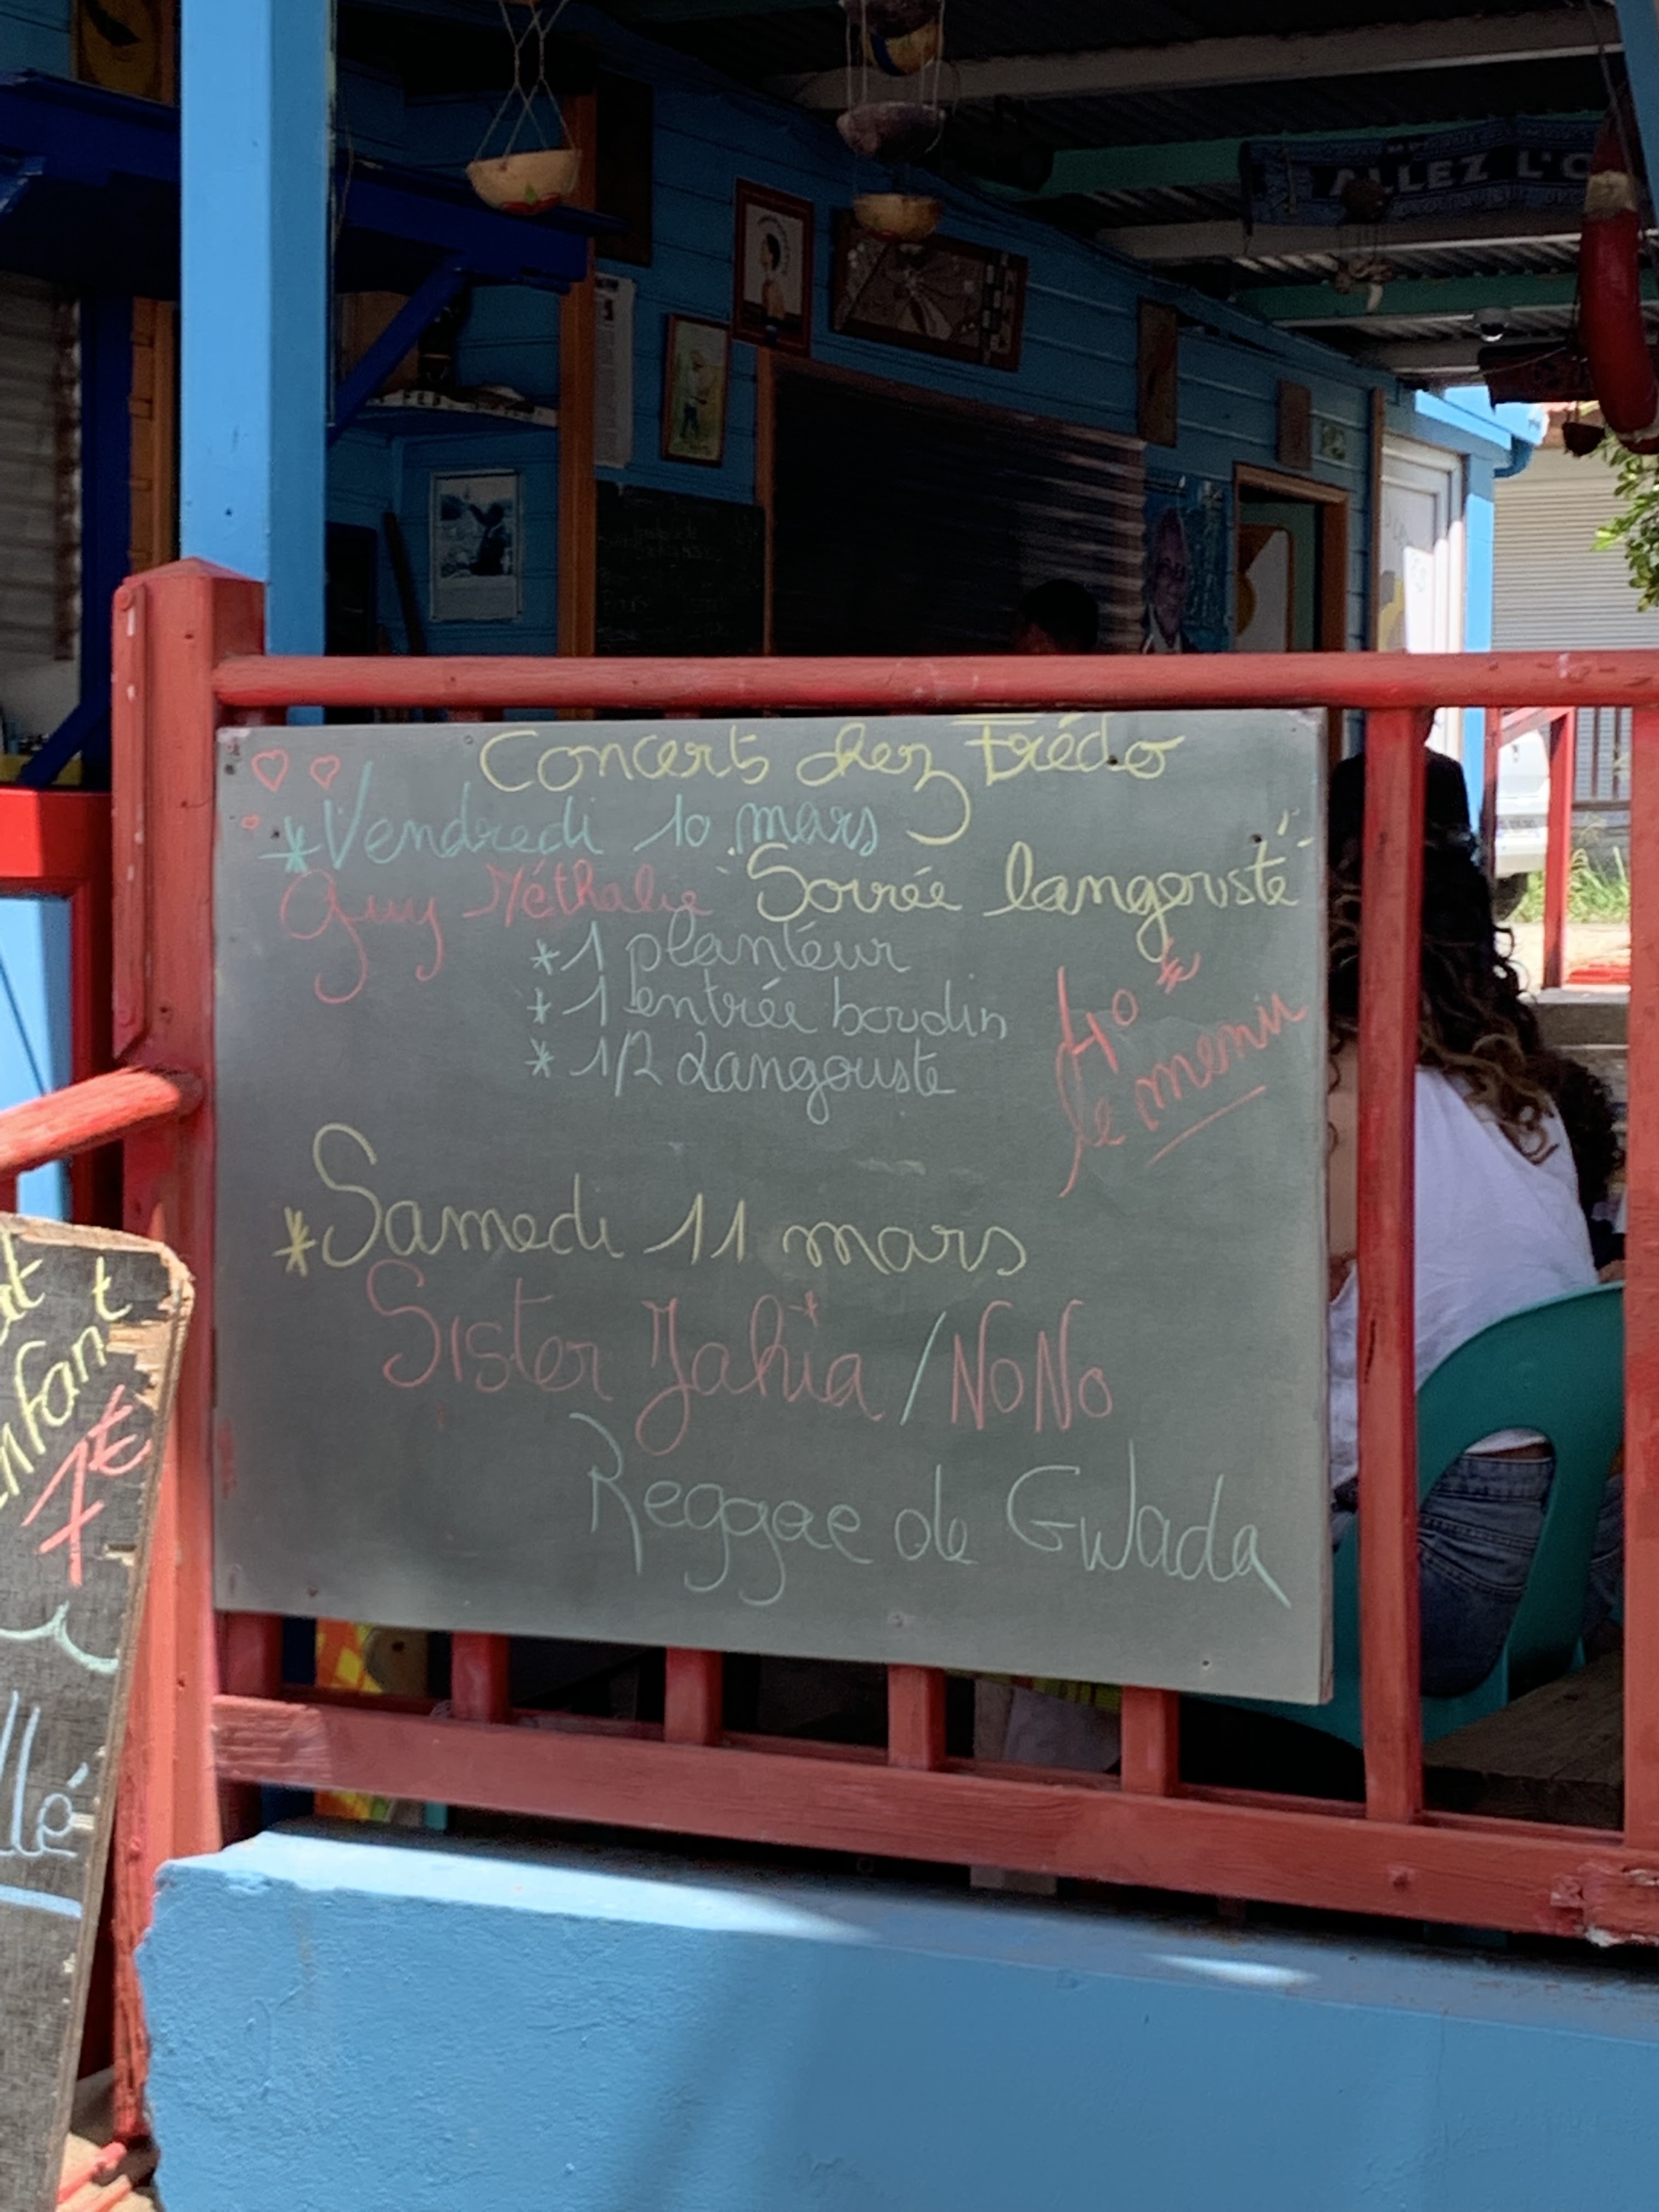 ALLEZ L'O
Concerts chez Frédo
*Vendredi 10 mars
Guy Méthalie "Soirée langouste"
*1 planteur
*1 entrée boudin
*1/2 Langouste
40 €
le menu
*Samedi 11 mars
Sister Jahia / NoNo
Reggae de Gwada
at
enfant
7€
llé